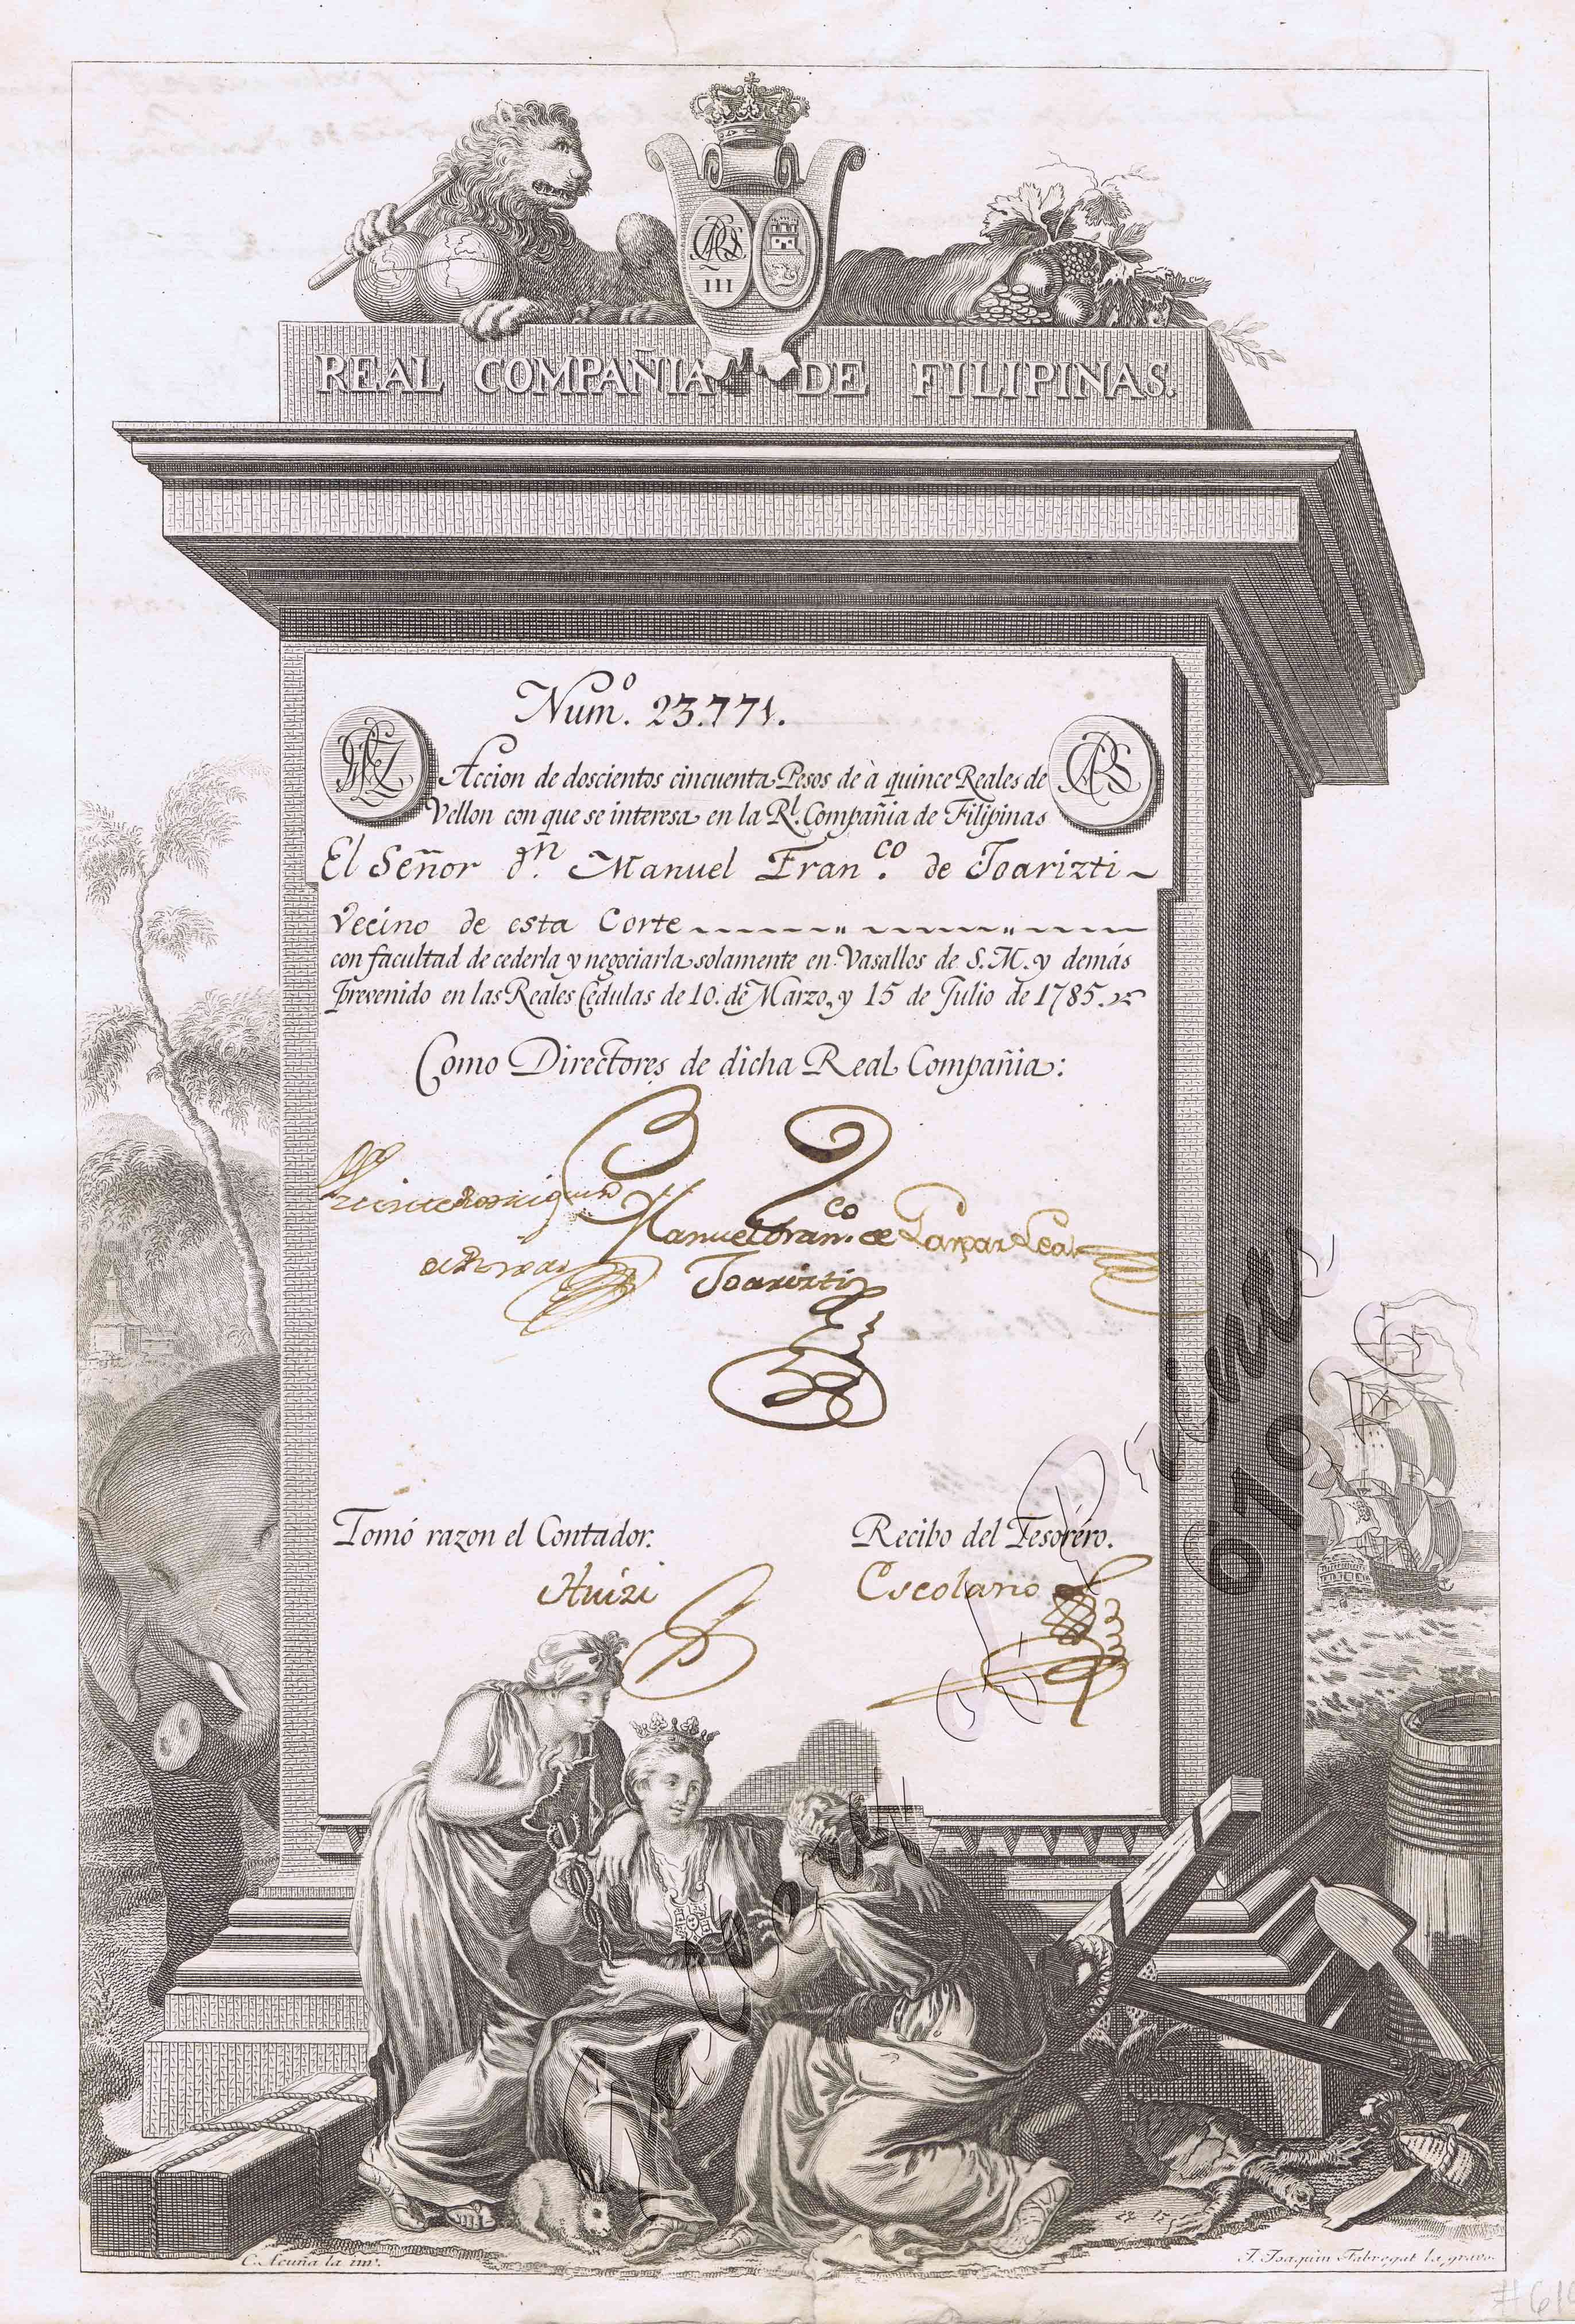 III
REAL COMPAÑIA DE FILIPINAS.
Num.º 23.771.
Accion de doscientos cincuenta Pesos de à quince Reales de
Vellon con que se interesa en la Rl. Compañia de Filipinas
El Señor dn. Manuel Fran.co de Joarizti
Vecino de esta Corte
con facultad de cederla y negociarla solamente en Vasallos de S. M. y demás
prevenido en las Reales Cedulas de 10. de Marzo, y 15 de Julio de 1785.
Como Directores de dicha Real Compañia:
Vicente Rodriguez
de Rivas
Manuel Fran.co de
Joarizti
Gaspar Leal
Tomó razon el Contador.
Huizi
Recibo del Tesoréro.
Escolano
C. Acuña la inv.
J. Joaquin Fabregat la gravo.